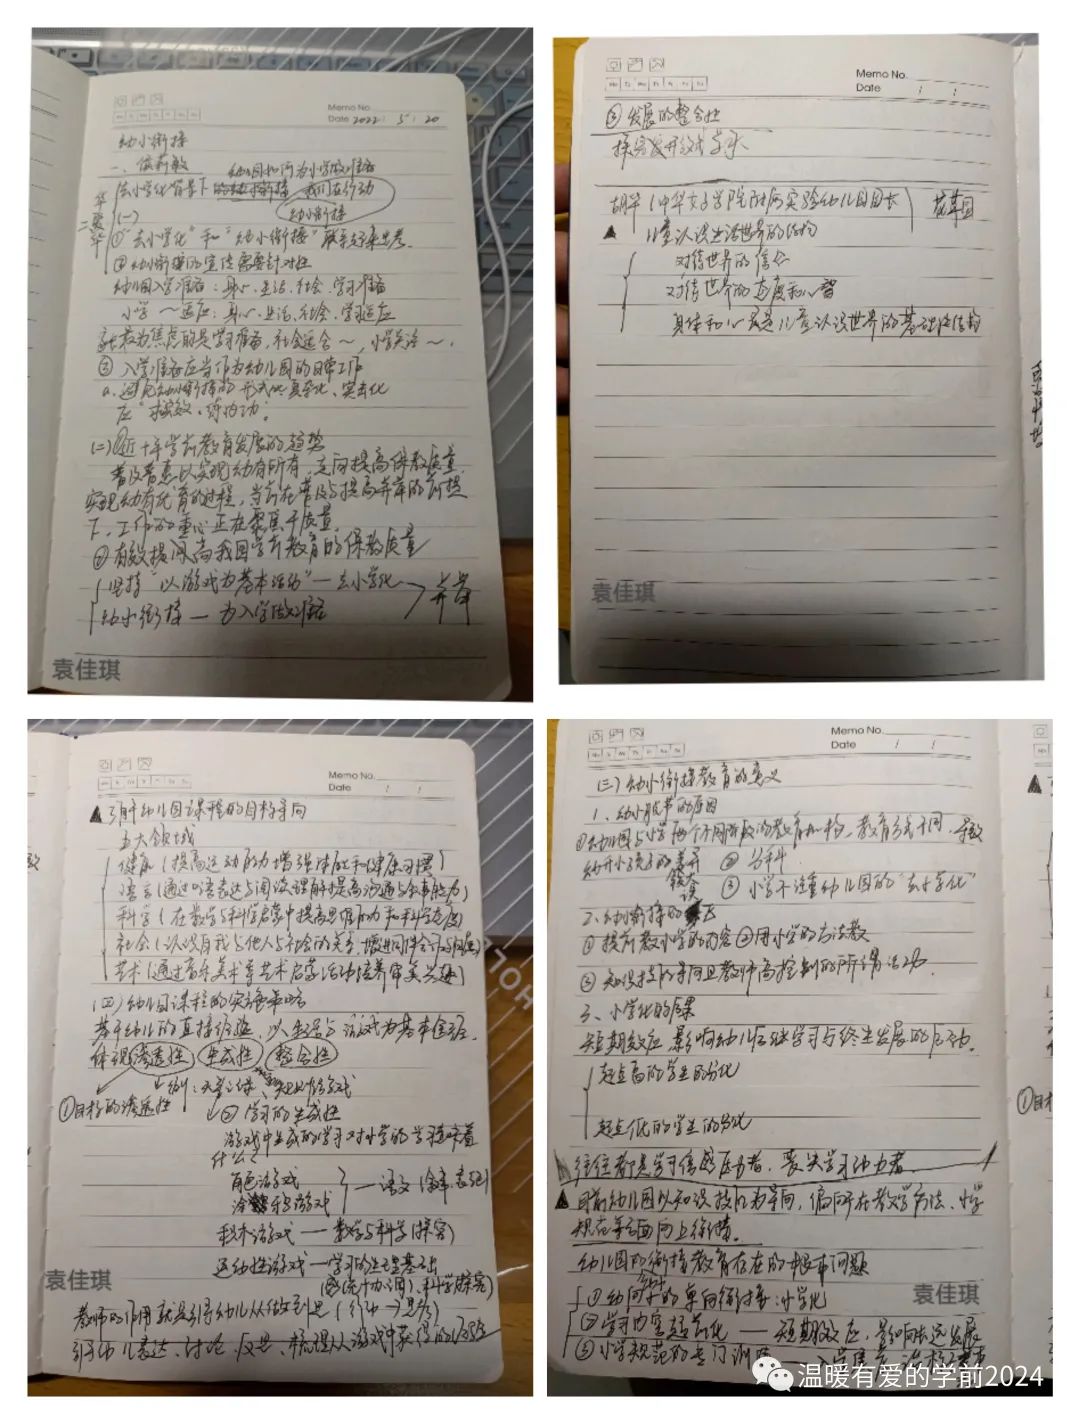 Memo No.
Date 2022 : 5 : 20
幼小衔接
一、侯莉敏 幼儿园如何为小学做准备
去小学化背景下的幼小衔接 我们在行动
幼小衔接
(一)
①"去小学化"和"幼小衔接"联系起来思考.
②幼小衔接的宣传需要针对性
幼儿园入学准备：身心、生活、社会、学习准备
小学～适应：身心、生活、社会、学习适应
家长最为焦虑的是学习准备，社会适合～，小学关注～.
③入学准备应当作为幼儿园的日常工作
a.避免幼小衔接的形式化复杂化、突击化
应"求实效、练内功"
(二)①近十年学前教育发展的趋势
普及普惠以实现幼有所有，走向提高保教质量，
实现幼有优育的过程，当前在普及与提高并存的前提
下，工作的重心正在聚焦于质量.
②有效提高我国学前教育的保教质量
坚持"以游戏为基本活动"—去小学化
幼小衔接—为入学做准备
并举
袁佳琪
Memo No.
Date / /
③发展的整合性
探究发开放式学习
胡华(中华女子学院附属实验幼儿园园长 花草园
▲儿童认识生活世界的结构
对待世界的信念
对待世界的态度和心智
身体和心灵是儿童认识世界的基础性结构
袁佳琪
Memo No.
Date / /
▲了解幼儿园课程的目标导向
五大领域
健康(提高运动能力增强体能和健康习惯)
语言(通过口语表达与阅读理解提高沟通与叙事能力)
科学(在数学与科学启蒙中提高思维能力和科学态度)
社会(认识自我与他人与社会的关系，增进同伴合计与沟通)
艺术(通过音乐美术等艺术启蒙活动培养审美兴趣)
(四)幼儿园课程的实施策略
基于幼儿的直接经验，以生活与游戏为基本途径.
体现渗透性 生成性 整合性
①目标的渗透性
②学习的生成性
游戏中生成的学习对小学的学习意味着
什么？
角色游戏
音乐游戏
—语文(前书写、表征)
积木游戏—数学与科学(探究)
运动性游戏—学习的生理基础
(感统协调)、科学(探究)
教师的作用就是引导幼儿从做到思(行动→思考)
引导幼儿表达、讨论、反思、梳理从游戏中获得的经验
袁佳琪
Memo No.
Date / /
(三)幼小衔接教育的意义
1、幼小脱节的原因
①幼儿园与小学两个不同阶段的教育机构，教育方式不同，导致
幼升小孩子的差异 ②分科
③小学不注重幼儿园的"去小学化"
2、幼小衔接的误区
①提前教小学的内容②用小学的方法教
③知识技能导向且教师高控制的所谓活动
3、小学化的后果
短期效应 影响幼儿后继学习与终生发展的后劲.
起点高的学生的分化
起点低的学生的分化
往往都是学习信感压力者，丧失学习动力者.
▲目前幼儿园以知识技能为导向，偏向所在教学方法、小学
规范等方面向上衔接.
幼儿园的衔接教育存在的根本问题
①幼向小的单向衔接：小学化
②学习内容超前化—短期效应，影响长远发展
③小学规范的专门训练
袁佳琪
温暖有爱的学前2024